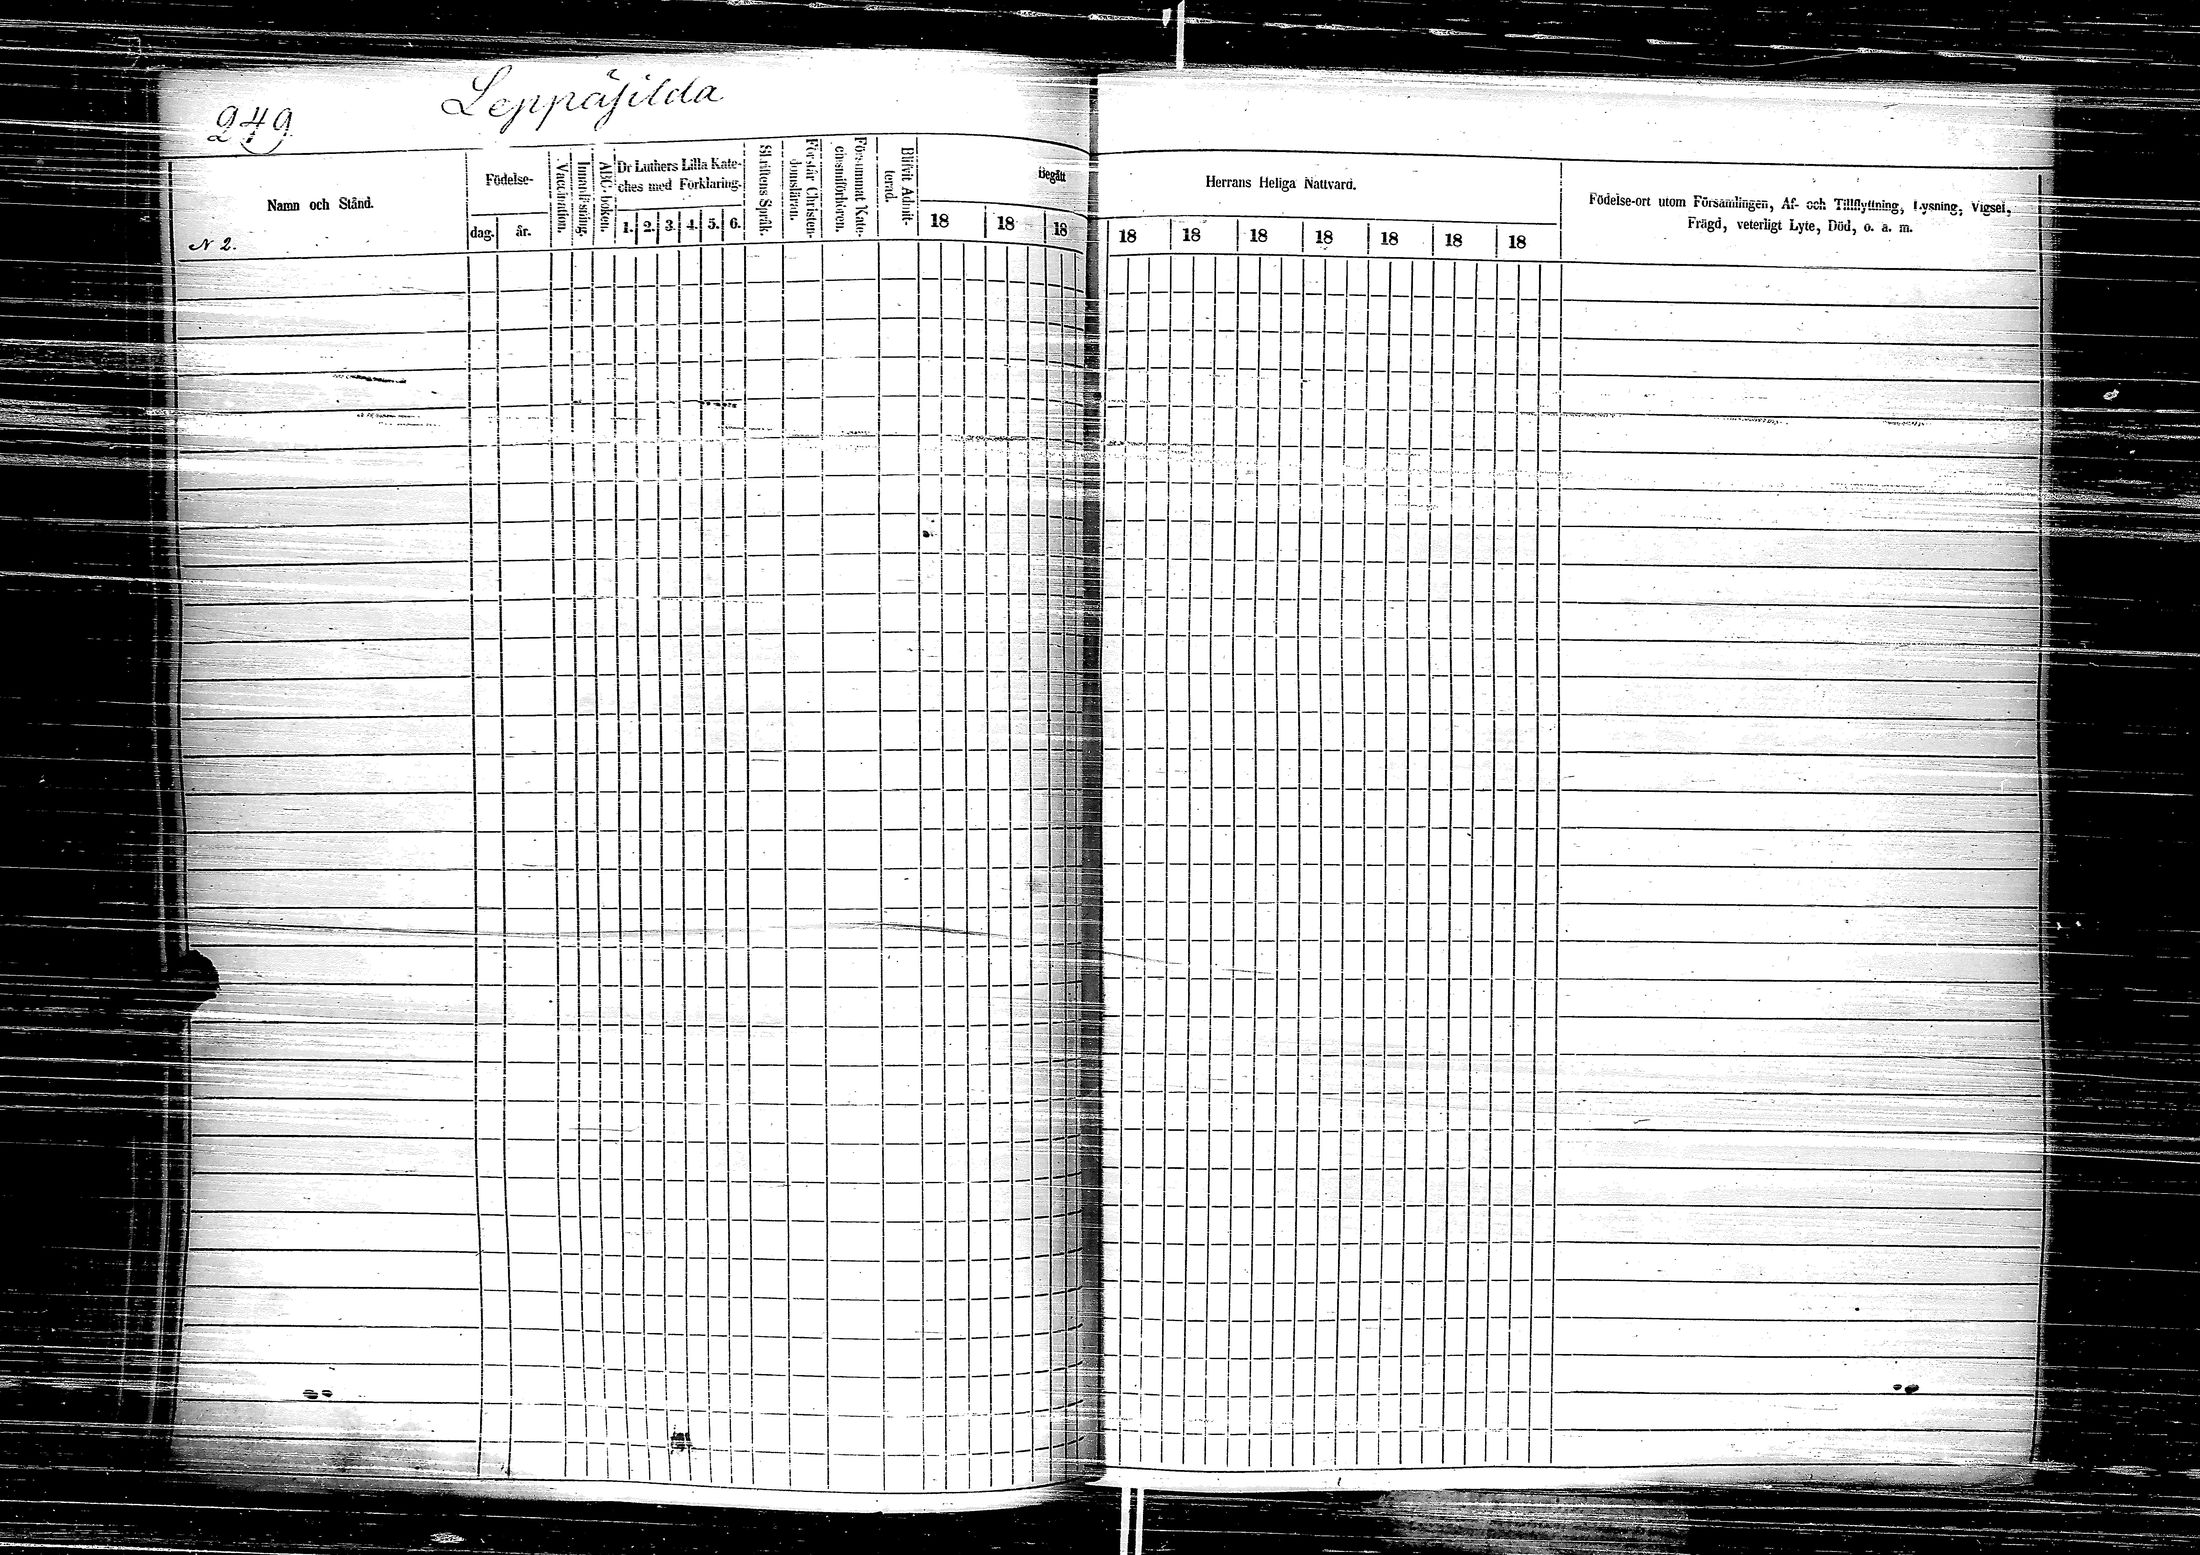 249
Leppäjilda
Namn och Stånd.
N 2.
Födelse-
dag.
år.
Vaccination.
Innanläsning.
ABC-boken.
Dr Luthers Lilla Kate-
ches med Förklaring.
1. 2. 3. 4. 5. 6.
Skriftens Språk.
Förstår Christen-
domsläran.
Försummat Kate-
chismiförhören.
Blifvit Admit-
terad.
Begått
18 18 18
Herrans Heliga Nattvard.
18 18 18 18 18 18 18
Födelse-ort utom Församlingen, Af- och Tillflyttning, Lysning, Vigsel,
Frägd, veterligt Lyte, Död, o. a. m.